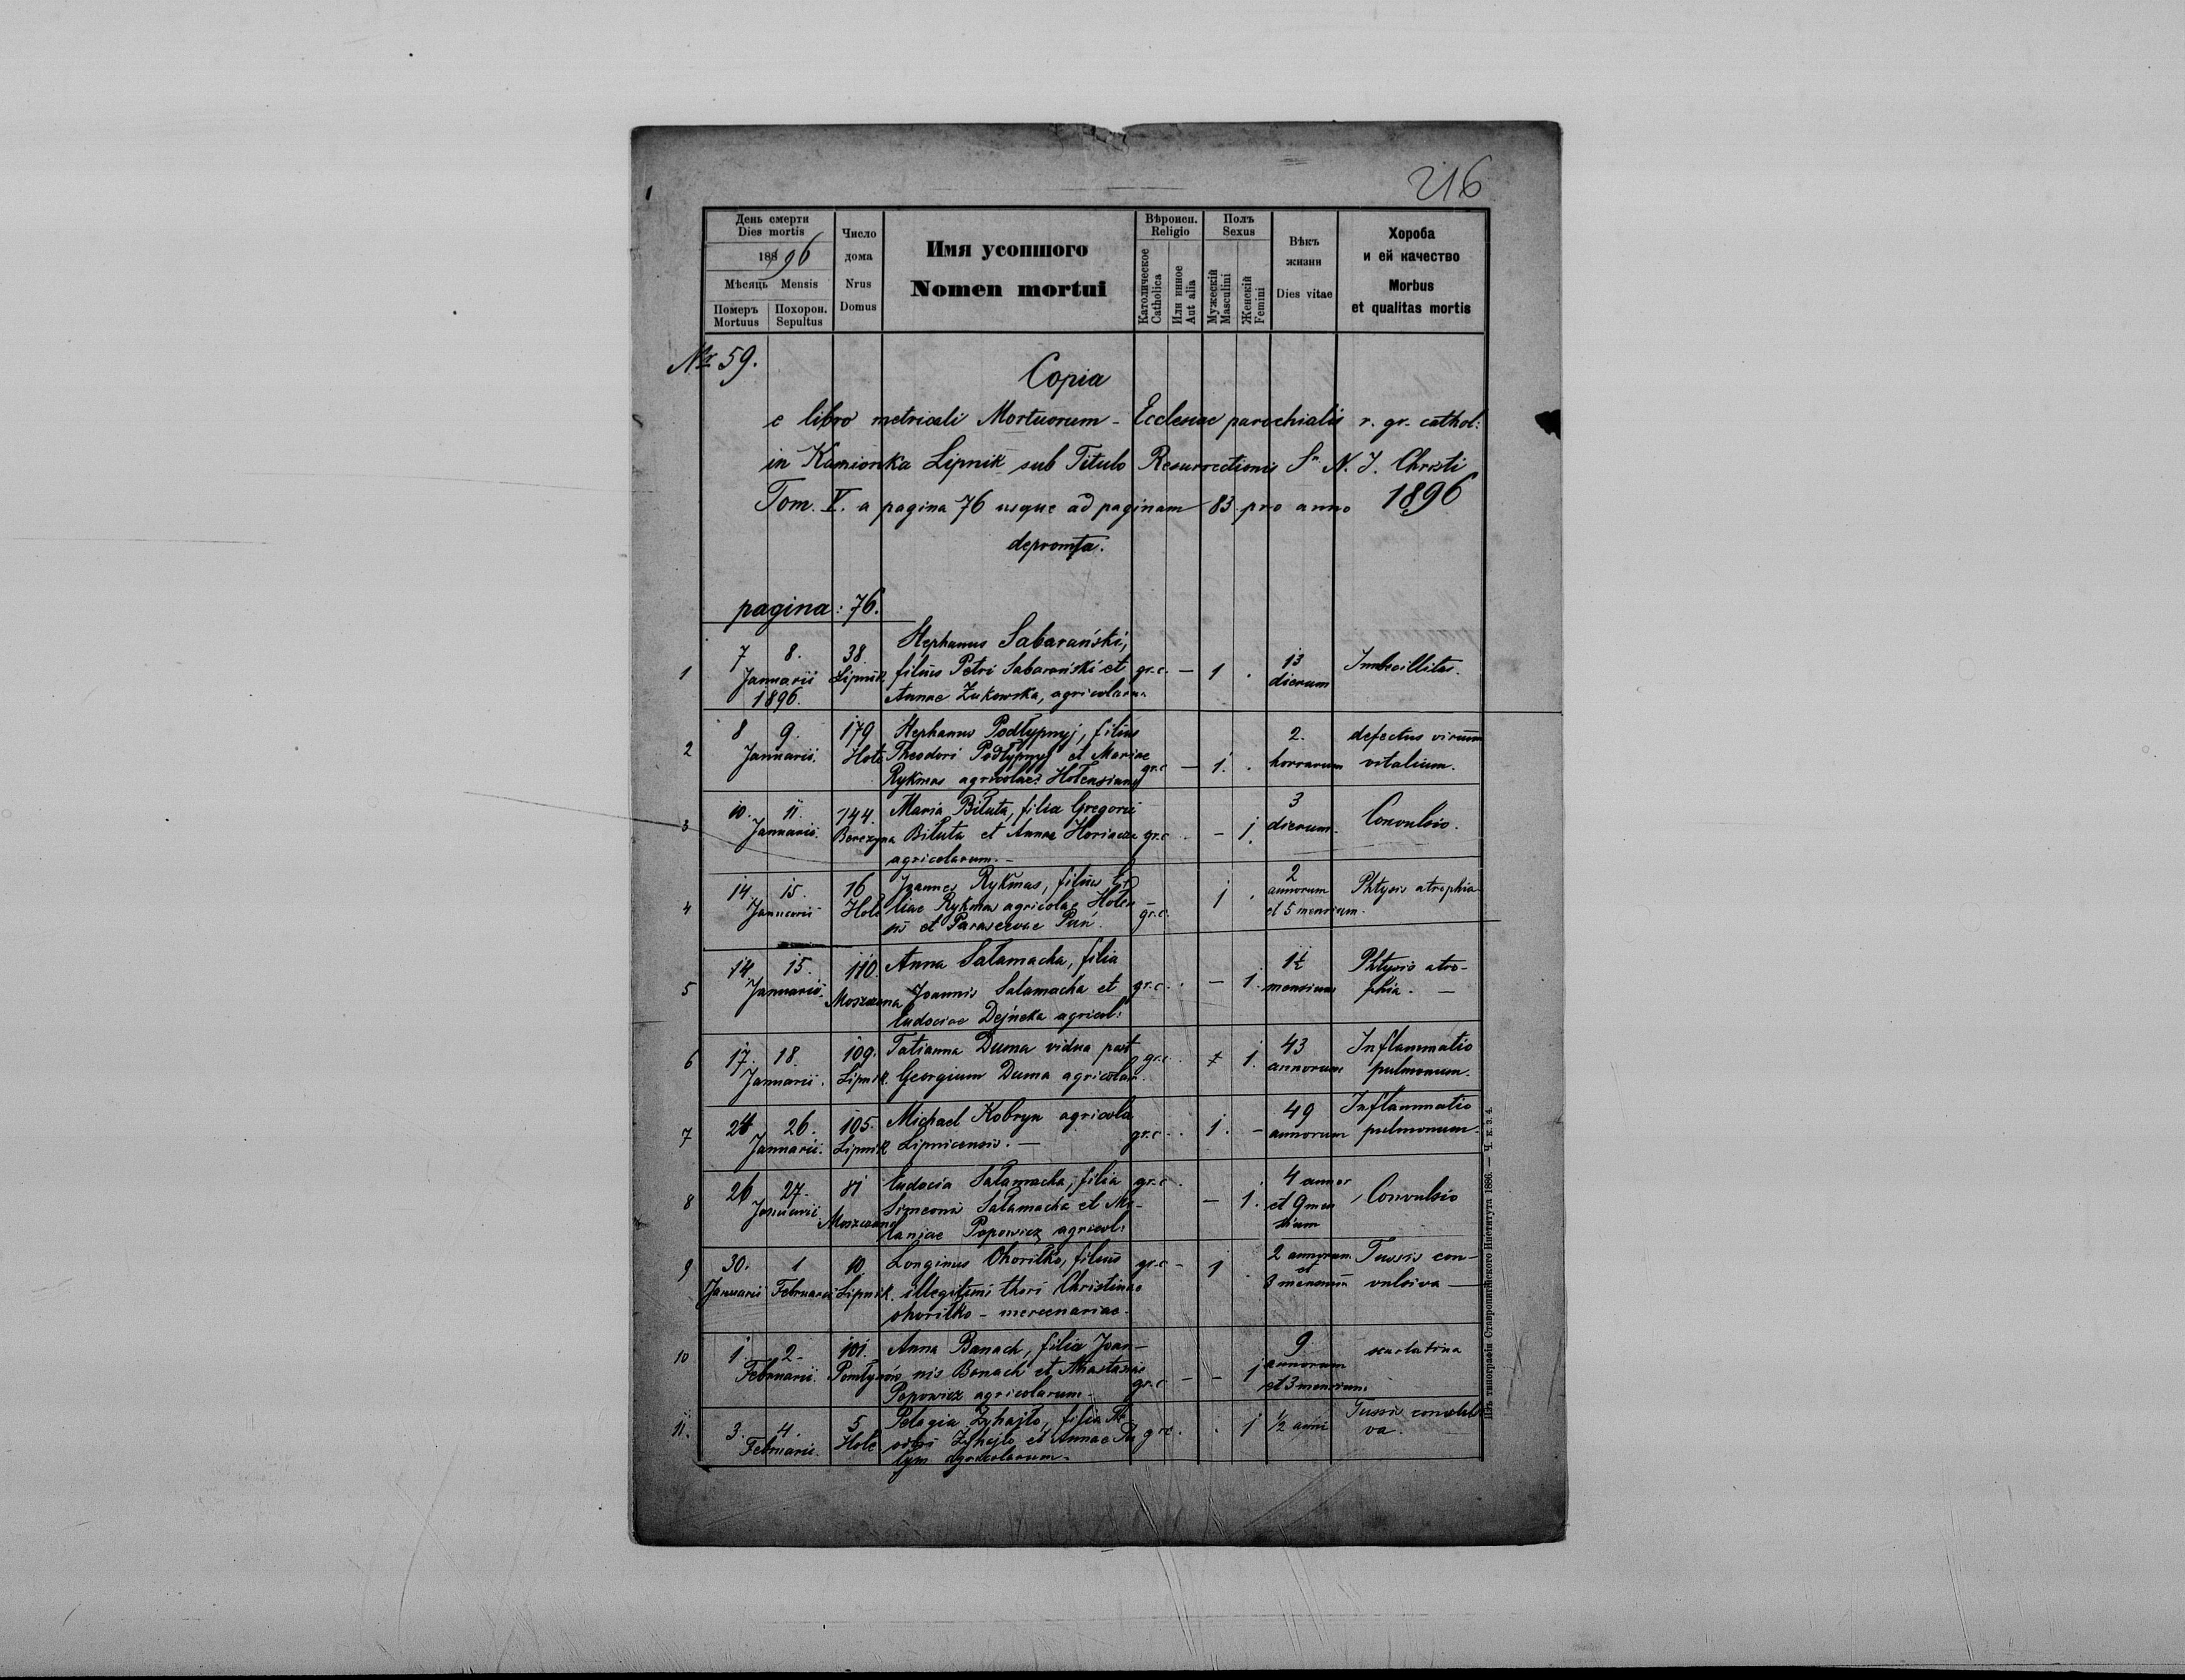 216
День смерти
Dies mortis
188 96
Мѣсяць Mensis
Померъ Похорон.
Mortuus Sepultus
Число
дома
Nrus
Domus
Имя усопшого
Nomen mortui
Вѣроисп.
Religio
Католическое
Catholica
Или инное
Aut alia
Полъ
Sexus
Мужескій
Masculini
Женскій
Femini
Вѣкъ
жизни
Dies vitae
Хороба
и ей качество
Morbus
et qualitas mortis
Nr 59.
Copia
e libro metricali Mortuorum - Ecclesiae parochialis r. gr. cathol:
in Kamionka Lipnik sub Titulo Resurrectionis N. J. Christi
Tom. V. a pagina 76 usque ad paginam 83 pro anno 1896
depromta.
pagina: 76.
Stephanus Sabarański,
1 7 8. 38. filius Petri Sabarański et gr.c. — 1 . 13 Imbecillitas.
Januarii Lipnik Annae Żukowska, agricolarum dierum
1896.
2 8 9. 179 Stephanus Podłypnyj, filius 2. defectus virium
Januarii. Hole Theodori Podłypnyj et Mariae gr.c — 1. . horrarum vitalium.
Rykmas agricolae
3 10. 11. 144. Maria Biłuta, filia Gregorii 3
Januarii. Berezyna Biłuta et Annae gr.c . - 1. dierum. Convulsio.
agricolarum. -
4 14. 15. 16 Joannes Rykmas, filius 2
Januarii Hole Rykmas agricolae gr.c. 1 . annorum Phtysis atrophia
et Parascevae Pań. et 5 mensium.
5 14. 15. 110. Anna Sałamacha, filia 1½ Phtysis atro-
Januarii. Moszczana Joannis Salamacha et gr.c. . - 1. mensium phia. —
Eudociae Dejneka agricol:
6 17. 18. 109. Tatianna Duma vidua post gr.c. 1. 43 Inflammatio
Januarii. Lipnik. Georgium Duma annorum pulmonum.
7 26. 105. Michael Kobryn agricola gr.c. . 1. - 49 Inflammatio
Januarii. Lipnik Lipnicensis. — annorum pulmonum.
8 26 27. 81 Eudocia Sałamacha, filia gr.c . — 1. 4 annor Convulsio
Januarii Moszczana Simeonis Sałamacha et Me- et 9 men
laniae Popowicz agricol: sium
9 30. 1 10. Longinus Ohoriłko, filius gr.c - 1 . 2 annorum Tussis con-
Januarii Februarii Lipnik. illegitimi thori Christinae et vulsiva —
ohoriłko - mercenariae. 3 mensium
10 1. 2- 101. Anna Banach, filia Joan- 9 scarlatina
Februarii. nis Banach et Anastasiae gr.c - - 1 annorum
Popowicz agricolarum - et 3 mensium.
11. 3. 4. 5. Pelagia Żyhajło, filia gr.c. . 1 ½ anni Tussis convulsi
Februarii. Hole Żyhajło et Annae va.
agricolarum.
Изъ типографіи Ставропигійского Института 1886. — Ч. к. з. 4.